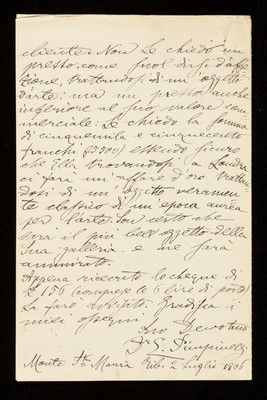 cliente. Non Le chiedo un
prezzo, come suol dirsi d'affe
zione, trattandosi di un oggetto
d'arte; ma un prezzo anche
inferiore al suo valore com
merciale: Le chiedo la somma
di cinquemila e cinquecento
franchi (5500) essendo sicuro
che Ella trovandosi a Londra
ci farà un affare d'oro trattan
dosi di un oggetto veramen
te classico di un'epoca aurea
per l'arte. Son certo che
sarà il più bell'oggetto della
Sua galleria e ne sarà
ammirato.
Appena ricevuto lo cheque di
£ 156 (comprese le 6 lire di porto)
La farò. Gradisca i
miei ossequi.
Suo Devotmo
Dr G.
Monte Sta Maria Tib. 2 Luglio 1906